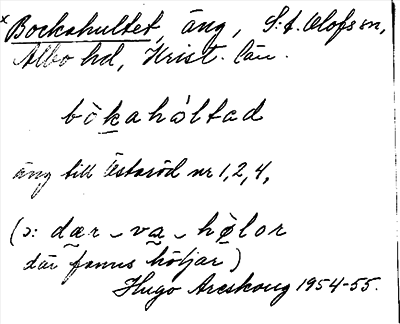 x Bockahultet, äng, S:t Olofs sn,
Albo hd, Krist. län.
bòkahàltad
äng till Östaröd nr 1, 2, 4,
(ɔ: dær va hø̀lor
där fanns höljar)
Hugo Areskoug 1954-55.